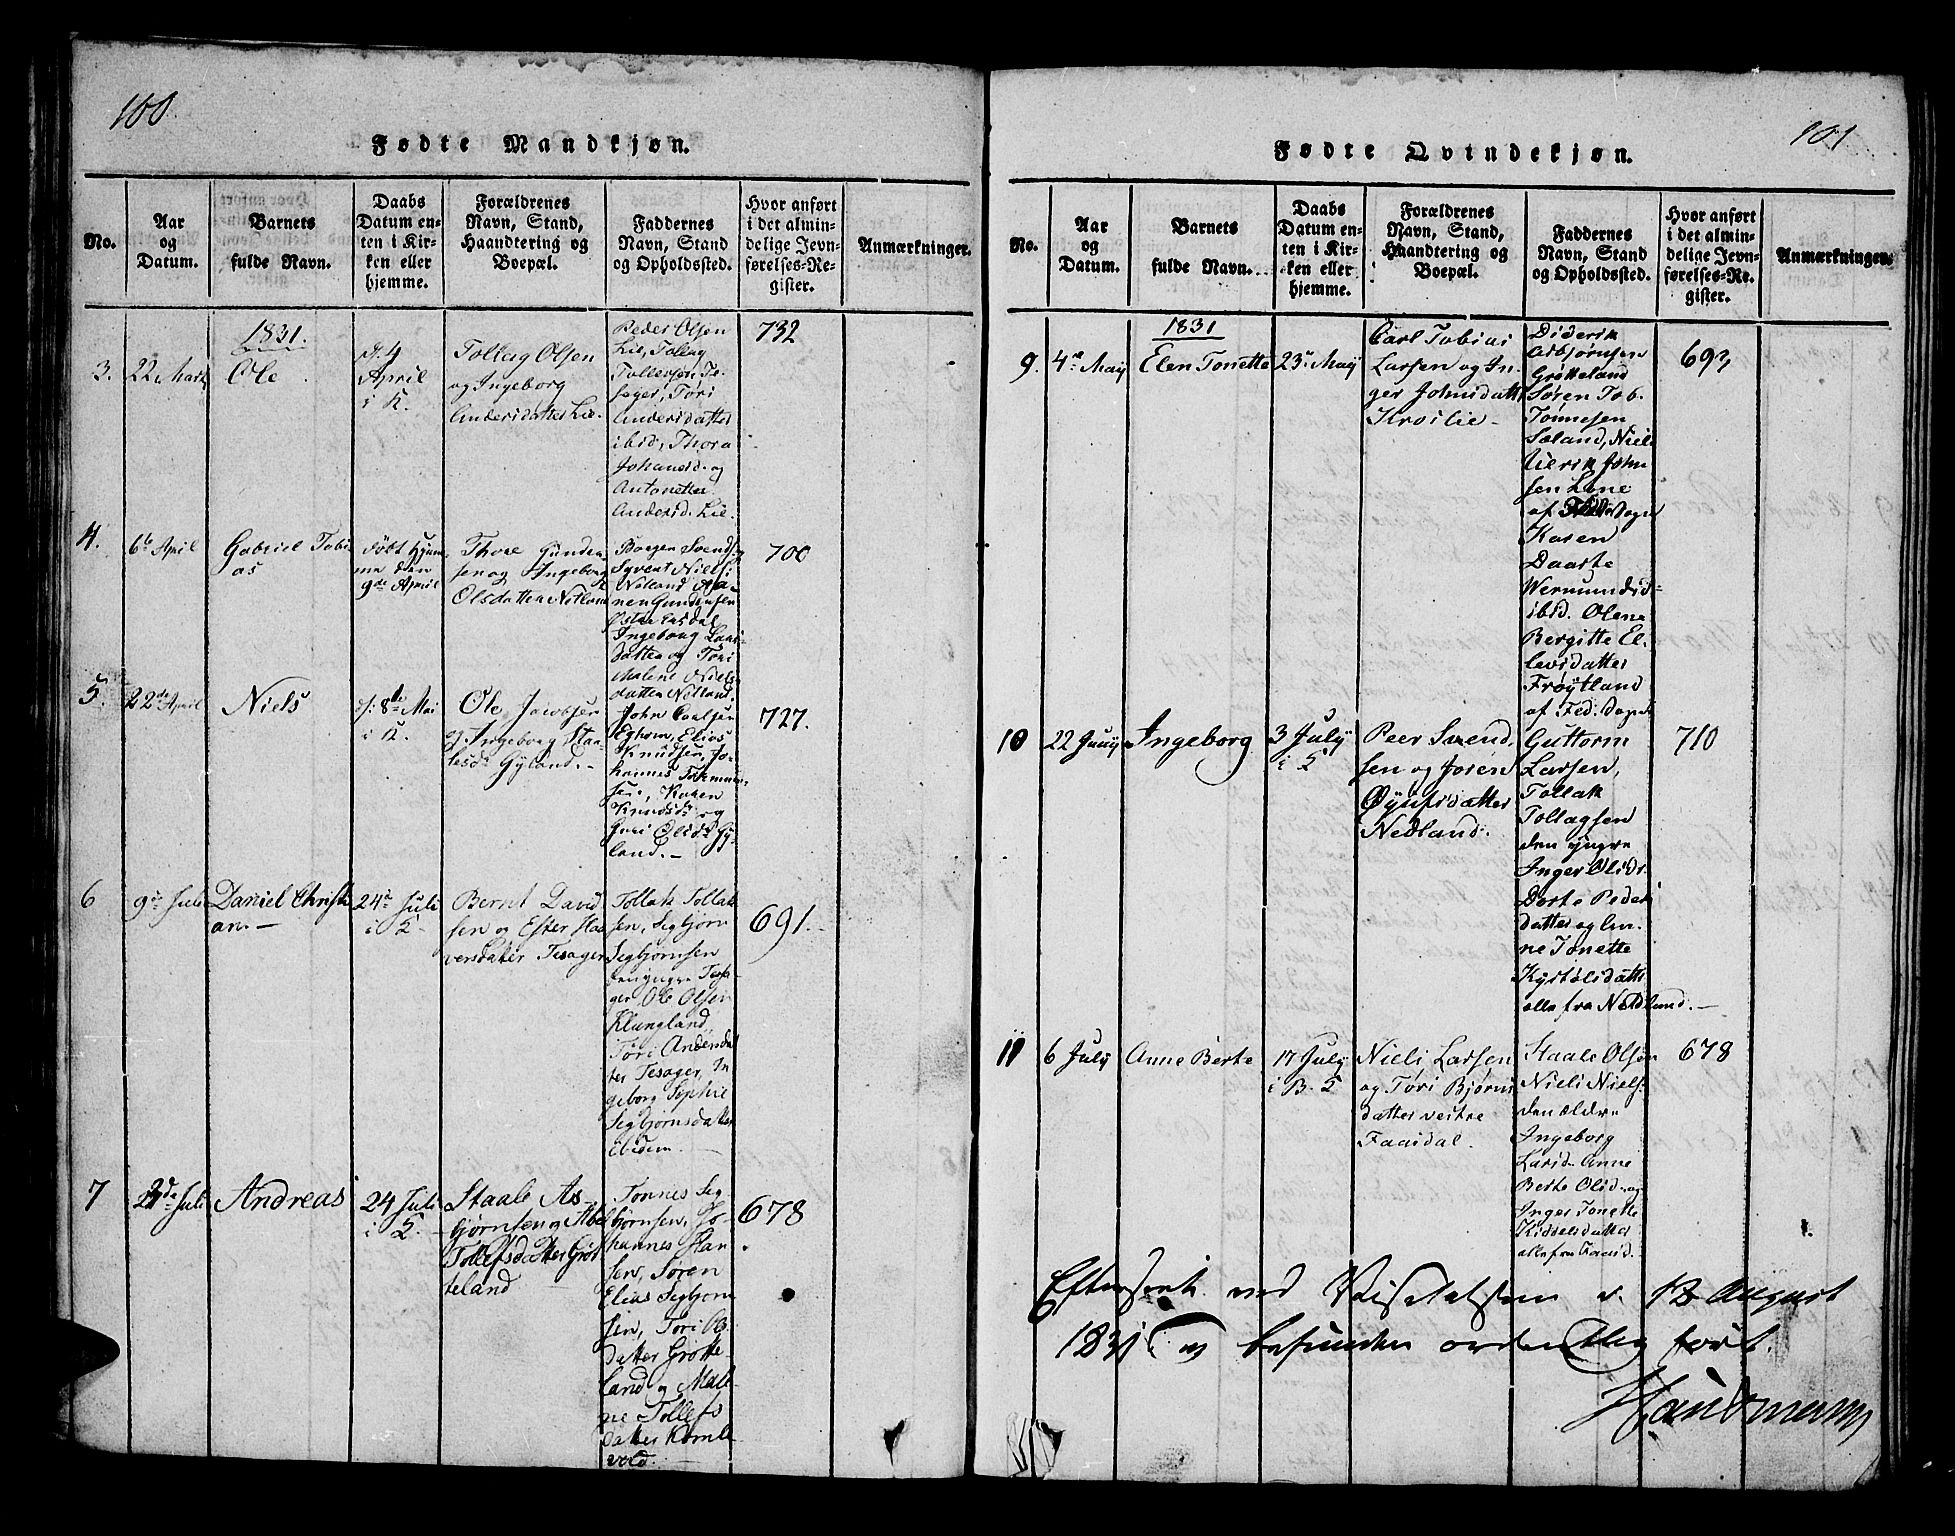 100.
Fødte Mandkjøn.
No.
Aar
og
Datum.
Barnets
fulde Navn.
Daabs
Datum en-
ten i Kir-
ken eller
hjemme.
Forældrenes
Navn, Stand,
Haandtering og
Boepæl.
Faddernes
Navn, Stand
og Opholdssted.
Hvor anført
i det almin-
delige Jevn-
førelses-Re-
gister.
Anmærkninger.
1831.
3.
22 Marts
Ole
d. 4
April
i K.
Tollag Olsen
og Ingeborg
Andersdatter Lie.
Peder Olsen
Lie, Tollag
Tollefsen Te-
sager, Tøri
Andersdatter
ibid, Thora
Johansd. og
Antonette
Andersd. Lie.
732
4.
6te April
Gabriel Tobi
as
døbt hjem-
me den
9de April
Thore Gunder
sen og Ingeborg
Olsdatter Netland
Borgen Svends.
Syvert Niels:
Netland
nen Gundersen
Ingeborg Lars-
datter og Tøri
Malene Niels
datter Netland.
700
5.
22de April
Niels
d: 8de Mai
i K.
Ole Jacobsen
og Ingeborg
Gyland.-
John
Elias
Knudsen, Jo-
hannes
sen, Karen
Knudsd. og
Guri Olsd. Gy-
land.-
727.
6
9de Juli
Daniel Christi
an.-
24de Juli
i
Bernt David
sen og Ester Haa
versdatter Tesager
Tollak Tollak
sen, Segbjørn
Segbjørnsen
den yngre Tesa-
ger Ole Olsen
Klungland,
Tøri Andersdat
ter Tesager, In
geborg Sophie
Segbjørnsdatter
ibidem.
691.
7
Juli
Andreas
24 Juli
i
Staale As-
bjørnsen og Abel
Tollefsdatter Grøt
teland
Tønnes Seg-
bjørnsen, Jo-
hannes Han
sen, Søren
Elias Segbjørn
sen, Tøri Ols
datter Grøtte-
land og Male-
ne Tollefs
datter Kornle
vold.
678
101
Fødte Qvindekjøn.
No.
Aar
og
Datum.
Barnets
fulde Navn.
Daabs
Datum en-
ten i Kir-
ken eller
hjemme.
Forældrenes
Navn, Stand,
Haandtering og
Boepæl.
Faddernes
Navn, Stand
og Opholdssted.
Hvor anført
i det almin-
delige Jevn-
førelses-Re-
gister.
Anmærkninger.
1831
9.
4de May
Elen Tonette
23de May
Carl Tobias
Larsen og In
ger Johnsdatt
Kroslie-
Diderik
Asbjørnsen
Grøtteland
Søren Tob.
Tønnesen
Sæland, Niels
Ulerik John
sen Lene
af Sogn
Karen
Daarte
Wermundsd-
ibid. Olene
Bergitte El
levsdatter
Frøytland
af Fed: Sogn
693
10
22 Juny
Ingeborg
3 July
i
Peer Svend
sen og Joren
Øyufsdatter
Nedland.
Guttorm
Larsen,
Tollak
Tollagsen
den yngre
Inger Olsdr.
Dorte Peders
datter og Len-
ne Tonette
Kystølsdatt
alle fra Nedlund.-
710
11
6 July
Anne Berte
17 July
i B.
Niels Larsen
og Tøri Bjørns
datter vestre
Faaidal.
Staale Olsen
Niels Niels:
den ældre
Ingeborg
Larsd. Anne
Berte Olsd. og
Inger Tonette
Kiddelsdatter
alle fra Faaid.
678
Efterseet ved Visitatsen d. 12 August
1831 og befunden ordentlig ført.